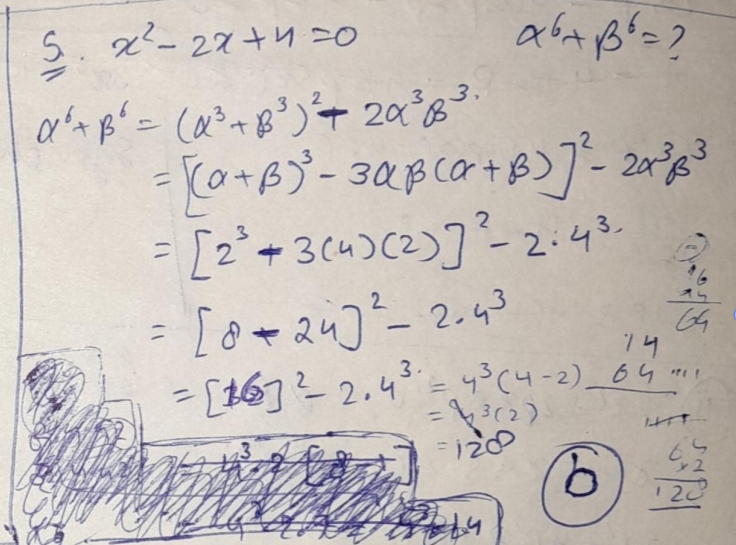 5. x² - 2x + 4 = 0 α⁶ + β⁶ = ?
α⁶ + β⁶ = (α³ + β³)² - 2α³β³.
= [(α + β)³ - 3αβ(α + β)]² - 2α³β³
= [2³ - 3(4)(2)]² - 2·4³.
= [8 - 24]² - 2·4³
= [16]² - 2·4³. = 4³(4-2)
= 4³(2)
= 128
b
16
64
14
64
64
×2
128